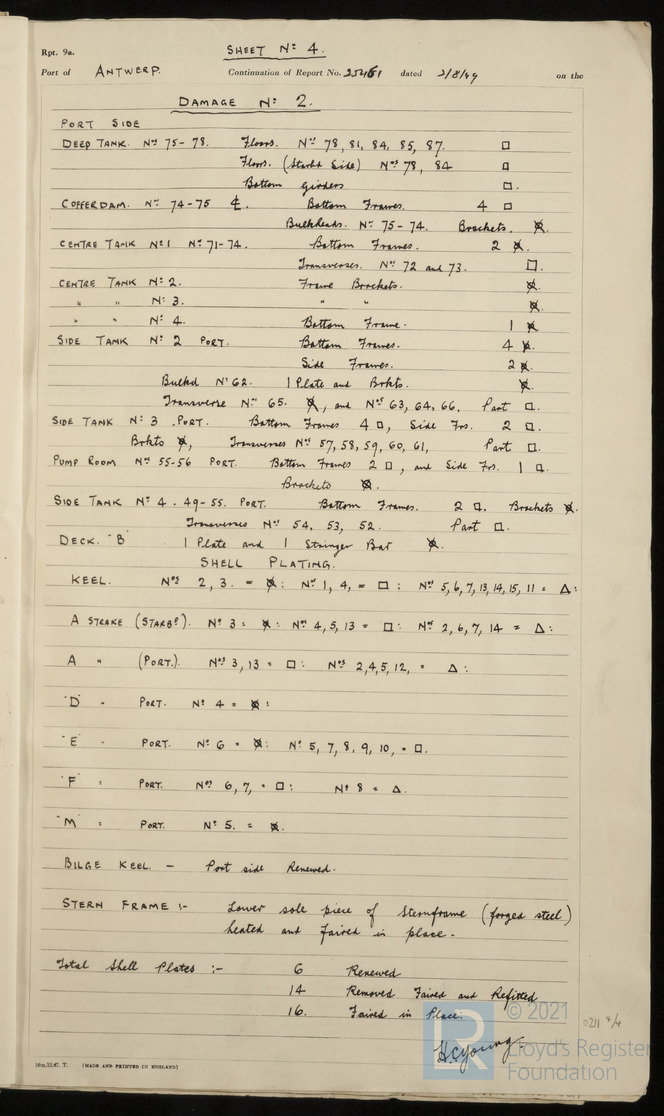 Rpt. 9a.
SHEET Nº 4.
Port of ANTWERP. Continuation of Report No. 25461 dated 2/8/49 on the
DAMAGE Nº 2.
PORT SIDE
DEEP TANK. Nos 75-78. Floors. Nos 78, 81, 84, 85, 87. □
Floors. (Starbd Side) Nos 78, 84 □
Bottom girders □.
COFFERDAM. Nos 74-75 ℄. Bottom Frames. 4 □
Bulkheads. Nos 75-74. Brackets. ⌀.
CENTRE TANK Nº1 Nos 71-74. Bottom Frames. 2 ⌀.
Transverses. Nos 72 and 73. □.
CENTRE TANK Nº 2. Frame Brackets. ⌀.
" " Nº 3. " " ⌀.
" " Nº 4. Bottom Frame. 1 ⌀
SIDE TANK Nº 2 PORT. Bottom Frames. 4 ⌀.
Side Frames. 2 ⌀.
Bulkd Nº 62. 1 Plate and Brkts. ⌀.
Transverse Nº 65. ⌀, and Nos 63, 64, 66, Part □.
SIDE TANK Nº 3 .PORT. Bottom Frames 4 □, Side Frs. 2 □.
Brkts ⌀, Transverses Nos 57, 58, 59, 60, 61, Part □.
PUMP ROOM Nos 55-56 PORT. Bottom Frames 2 □, and Side Frs. 1 □.
Brackets ⌀.
SIDE TANK Nº 4. 49-55. PORT. Bottom Frames. 2 □. Brackets ⌀.
Transverses Nos 54, 53, 52. Part □.
DECK. "B" 1 Plate and 1 Stringer Bar ⌀.
SHELL PLATING.
KEEL. Nos 2, 3. = ⌀: Nos 1, 4, = □: Nos 5, 6, 7, 13, 14, 15, 11 = △:
A STRAKE (STARBD). Nº 3 = ⌀: Nos 4, 5, 13 = □: Nos 2, 6, 7, 14 = △:
A " (PORT.). Nos 3, 13 = □: Nos 2, 4, 5, 12, = △:
"D" - PORT. Nº 4 = ⌀:
"E" - PORT. Nº 6 = ⌀: Nº 5, 7, 8, 9, 10, = □.
"F" " PORT. Nos 6, 7, = □: Nº 8 = △.
"M" = PORT. Nº 5. = ⌀.
BILGE KEEL. - Port side Renewed.
STERN FRAME :- Lower sole piece of Sternframe (forged steel)
heated and faired in place.
Total Shell Plates :- 6 Renewed
14 Removed Faired and Refitted
16. Faired in Place.
H.C. Young.
© 2021
0211 4/4
LR
Lloyd's Register
Foundation
(MADE AND PRINTED IN ENGLAND)